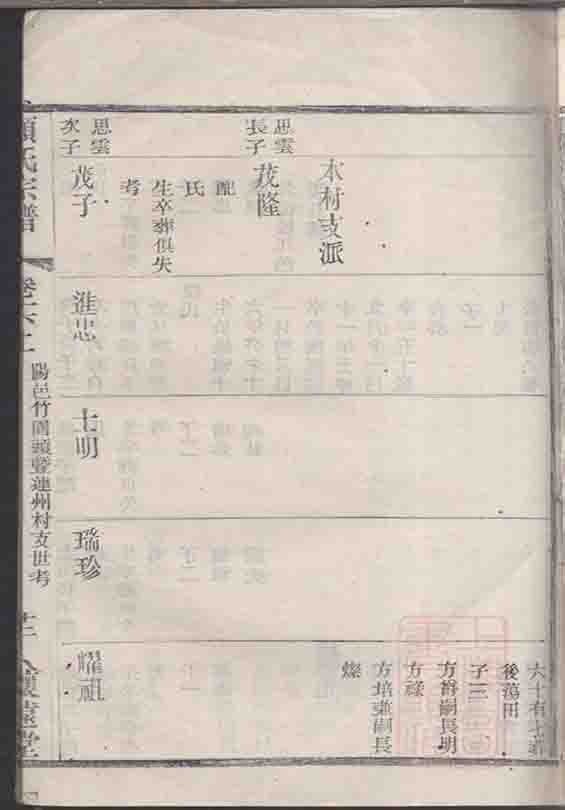 本村支派
思雲
長子
茂隆
配
氏
生卒葬俱失
考
思雲
次子
茂子
進忠
士明
瑞珍
六十有七葬
後蕩田
子三
方爵嗣長明
方祿
方培兼嗣長
燦
耀祖
顧氏宗譜
卷六二
陽邑竹園頭暨蓮州村支世考